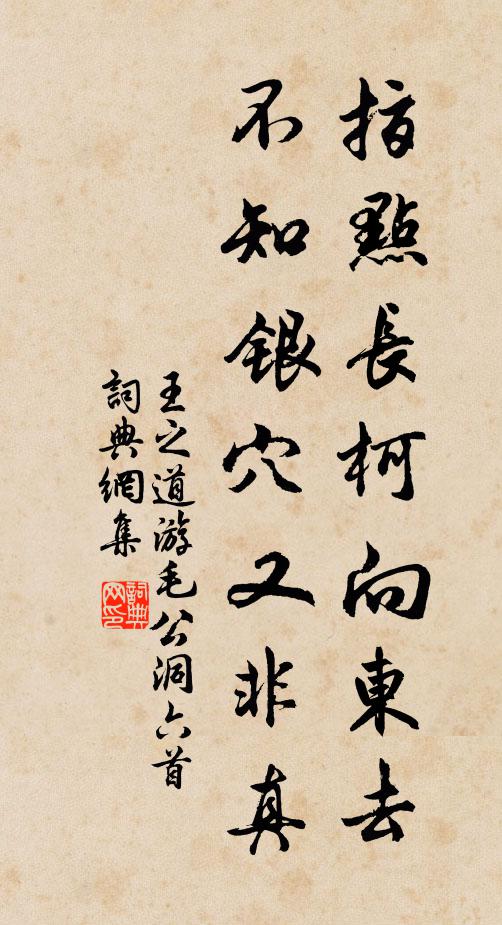 指點長柯向東去
不知銀穴又非真
王之道游毛公洞六首
詞典網集
詞典网印